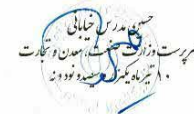 حسین مدرس خیابانی
سرپرست وزارت صنعت، معدن و تجارت
۱۰ تیر ماه یکهزار و سیصد و نود و نه